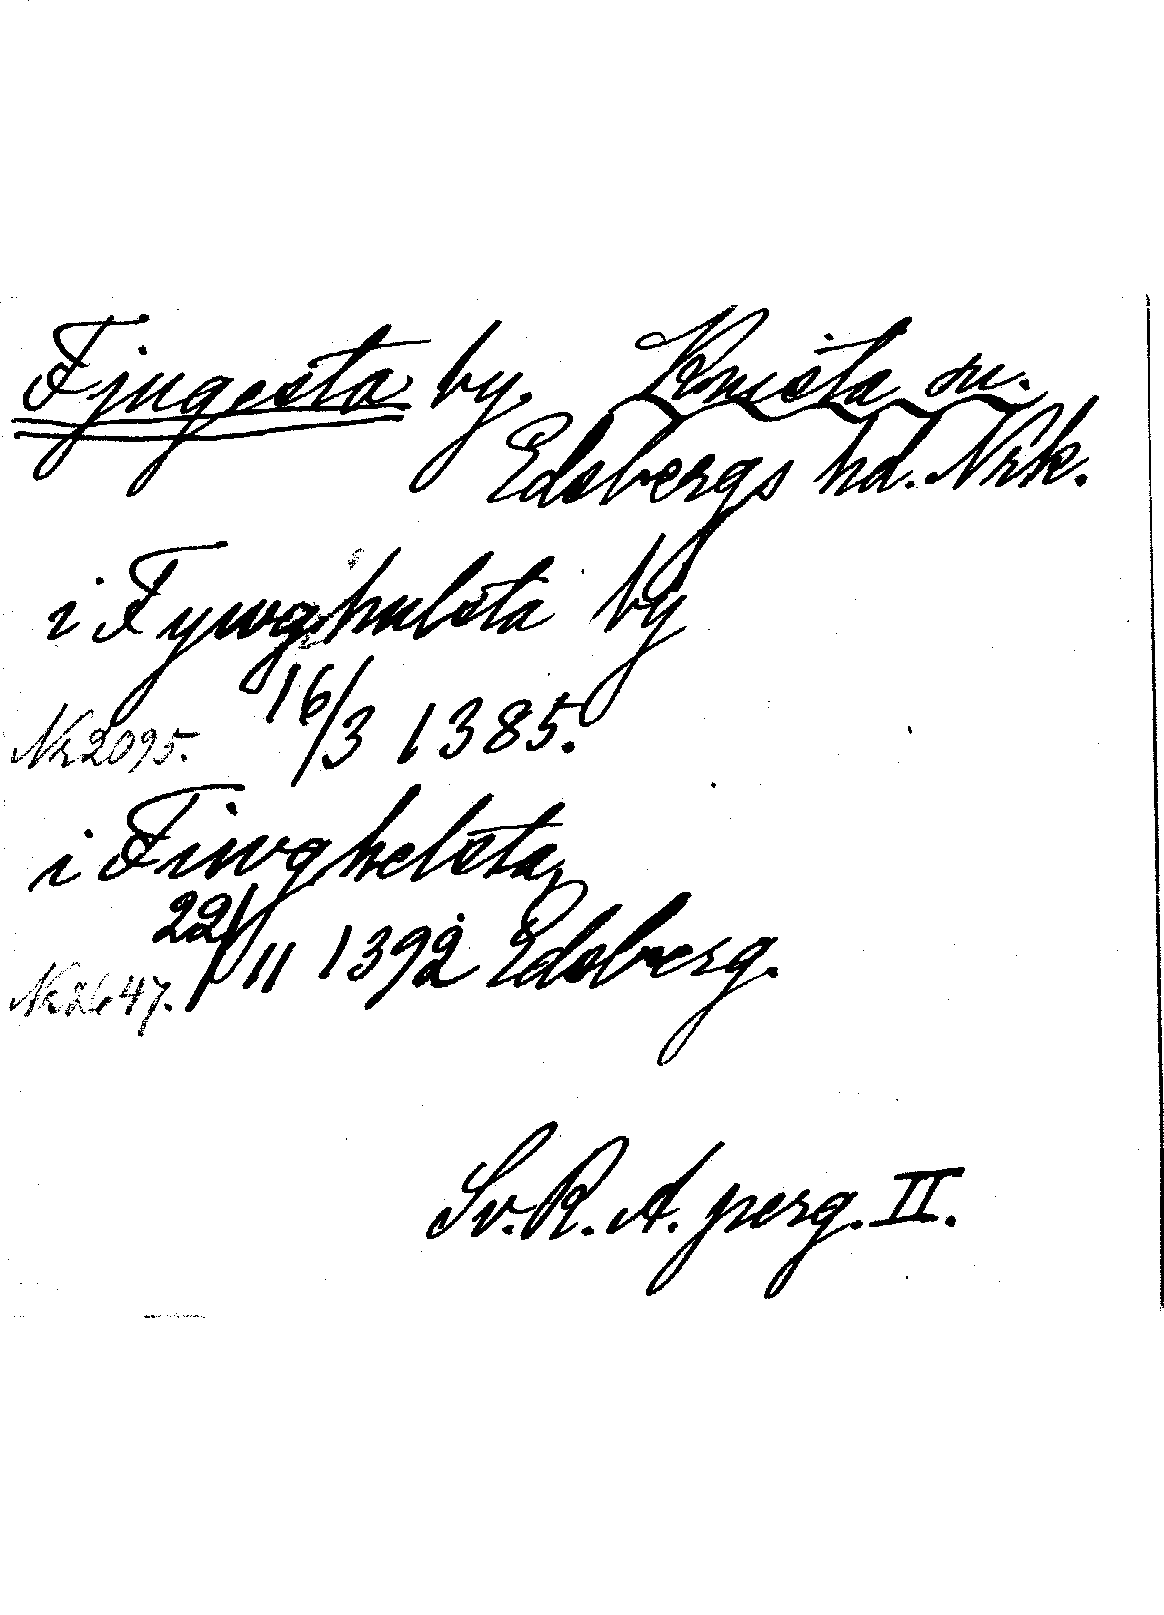 Fjugesta by. Knista sn.
Edsbergs hd. Nrk.
i Fywghulsta by
16/3 1385.
Nr 2095.
i Fiwghelsta,
22/11 1392 Edsberg.
Nr 2647.
Sv. R. A. perg. II.